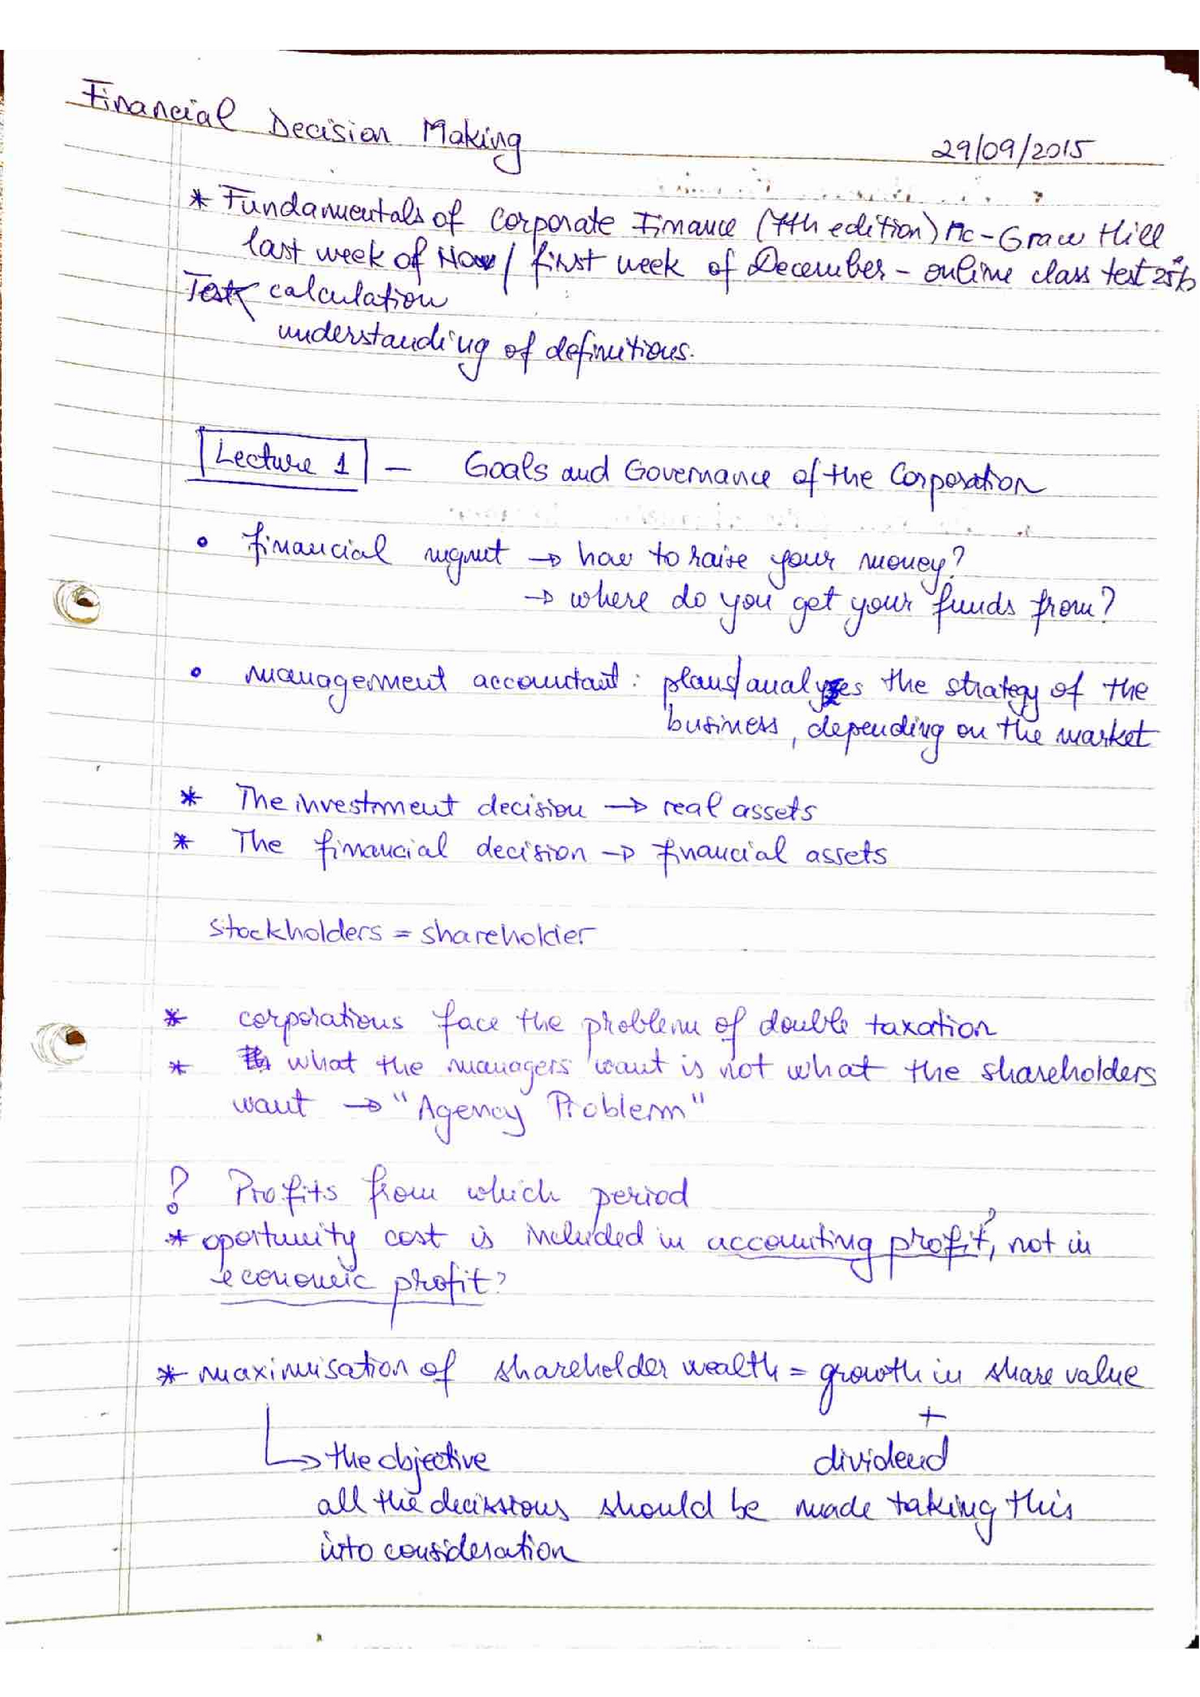 Financial Decision Making
29/09/2015
* Fundamentals of Corporate Finance (7th edition) Mc-Graw Hill
last week of Nov / first week of December - online class test 25%
Test calculation
understanding of definitions.
Lecture 1 - Goals and Governance of the Corporation
• financial mgmt → how to raise your money?
→ where do you get your funds from?
• management accountant: plans/analyses the strategy of the
business, depending on the market
* The investment decision → real assets
* The financial decision → financial assets
stockholders = shareholder
* corporations face the problem of double taxation
* what the managers want is not what the shareholders
want → "Agency Problem"
? Profits from which period
* oportunity cost is included in accounting profit?, not in
economic profit?
* maximisation of shareholder wealth = growth in share value
+
↳ the objective dividend
all the decissions should be made taking this
into consideration